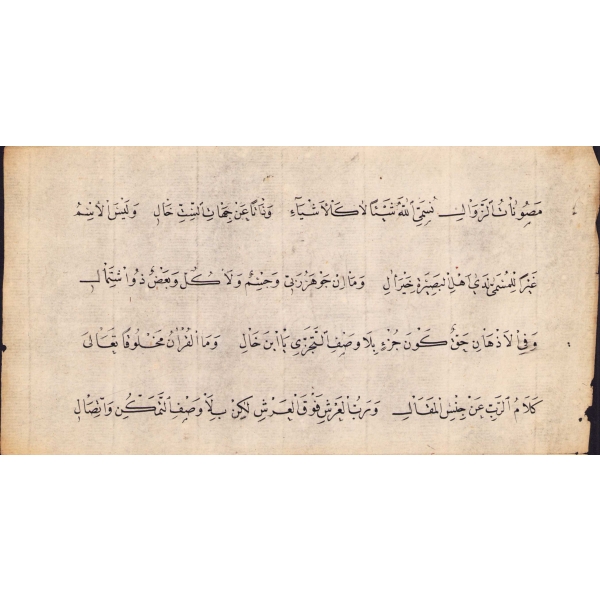 مَصُونَاتُ الزَّوَالِ نُسَمِّي اللهَ شَيْئًا لَا كَالْاَشْيَاءِ وَذَاتًا عَنْ جِهَاتِ السِّتِّ خَالِي وَلَيْسَ الْاِسْمُ
غَيْرًا لِلْمُسَمّٰى لَدٰى اَهْلِ الْبَصِيرَةِ خَيْرِ اٰلِ وَمَا اِنْ جَوْهَرٌ رَبِّي وَجِسْمٌ وَلَا كُلٌّ وَبَعْضٌ ذُو اشْتِمَالِ
وَفِي الْاَذْهَانِ حَقٌّ كَوْنُ جُزْءٍ بِلَا وَصْفِ التَّجَزِّي يَا ابْنَ خَالِي وَمَا الْقُرْاٰنُ مَخْلُوقًا تَعَالٰى
كَلَامُ الرَّبِّ عَنْ جِنْسِ الْمَقَالِ وَرَبُّ الْعَرْشِ فَوْقَ الْعَرْشِ لٰكِنْ بِلَا وَصْفِ التَّمَكُّنِ وَاتِّصَالِ